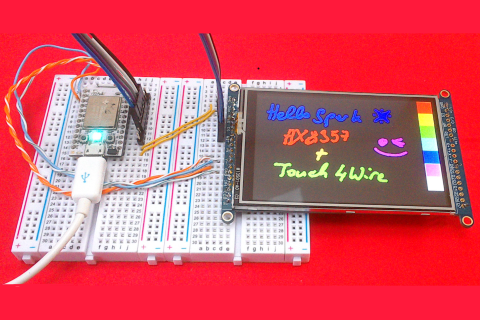 Hello Spark
HX8357
+
Touch 4Wire